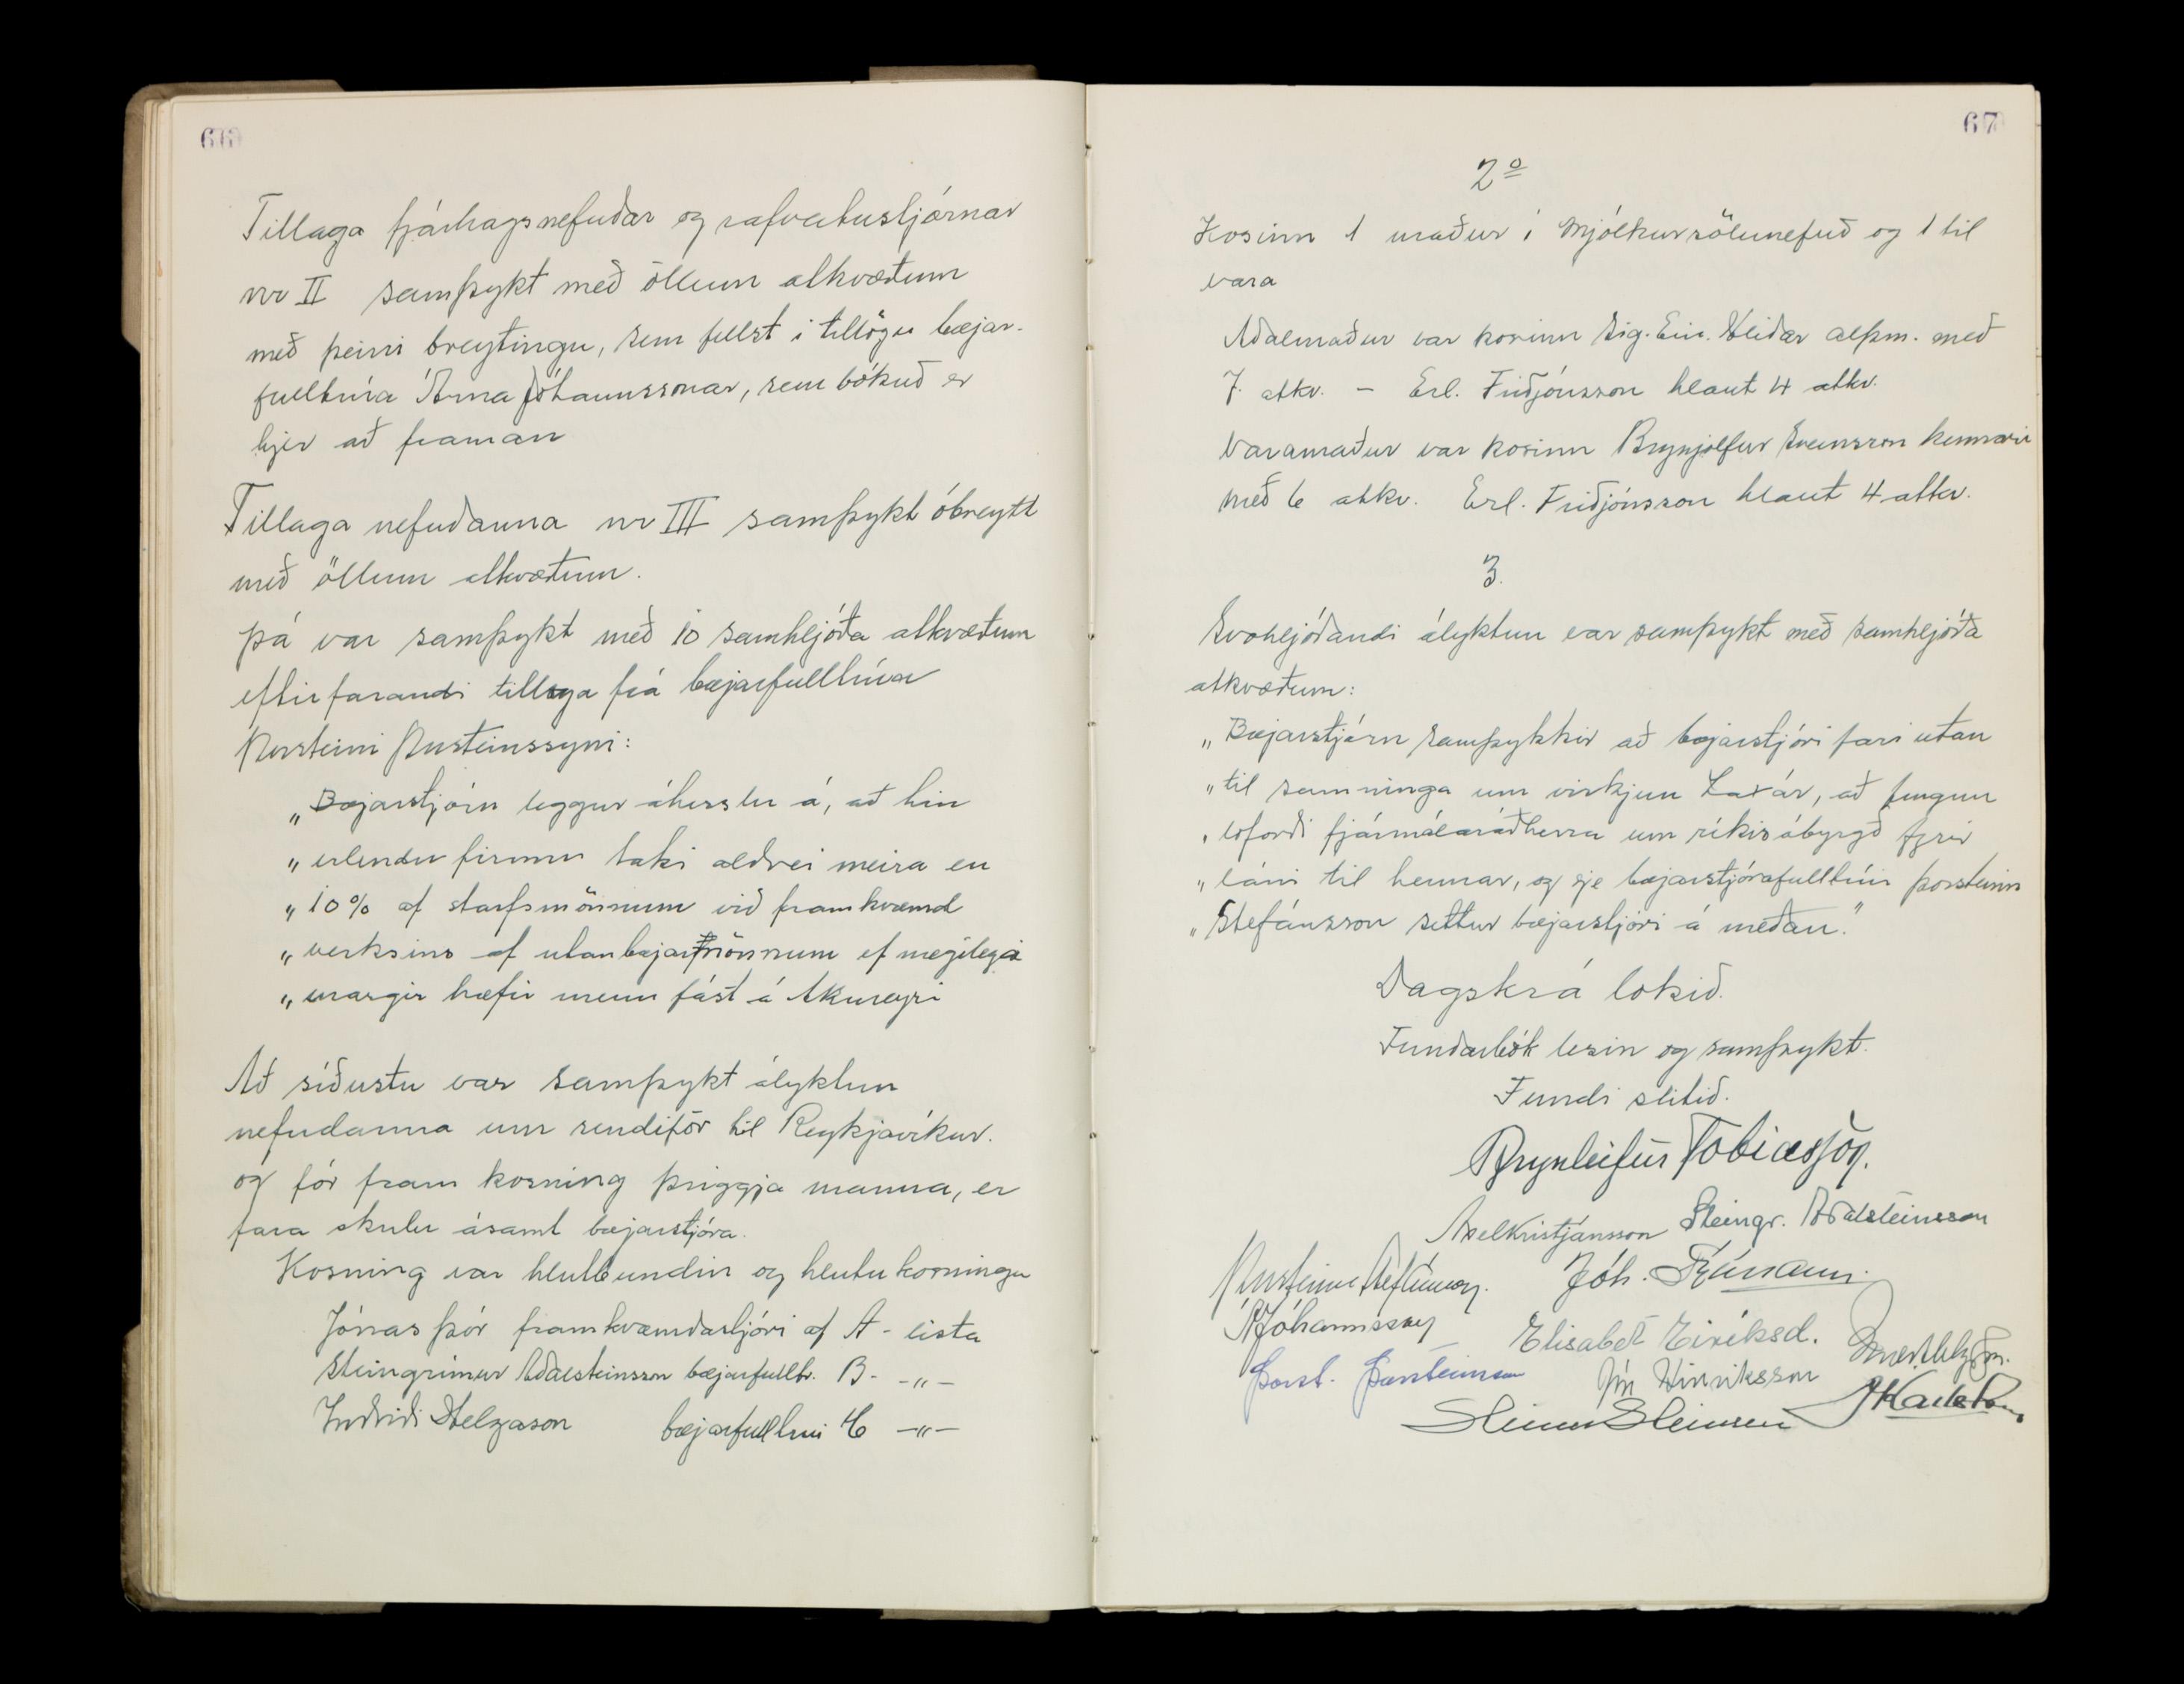 66
Tillaga fjárhagsnefndar og rafveitustjórnar
nr II samþykt með öllum atkvæðum
með þeirri breytingu, sem fellst í tillögu bæjar-
fulltrúa Árna Jóhannssonar, sem bókuð er
hjer að framan
Tillaga nefndanna nr III samþykt óbreytt
með öllum atkvæðum.
Þá var samþykt með 10 samhljóða atkvæðum
eftirfarandi tillaga frá bæjarfulltrúa
Þorsteini Þorsteinssyni:
„Bæjarstjórn leggur áherslu á, að hin
„erlendu firmu taki aldrei meira en
„10% af starfsmönnum við framkvæmd
„verksins af utanbæjarmönnum ef nægilega
„margir hæfir menn fást á Akureyri
Að síðustu var samþykt ályktun
nefndanna um sendiför til Reykjavíkur.
og fór fram kosning þriggja manna, er
fara skulu ásamt bæjarstjóra.
Kosning var hlutbundin og hlutu kosningu
Jónas Þór framkvæmdastjóri af A - lista
Steingrímur Aðalsteinsson bæjarfulltr. B - -„-
Indriði Helgason bæjarfulltrúi C -„-
67
2o
Kosinn 1 maður í Mjólkursölunefnd og 1 til
vara
Aðalmaður var kosinn Sig. Ein. Hlíðar alþm. með
7. atkv. - Erl. Friðjónsson hlaut 4 atkv.
Varamaður var kosinn Brynjólfur Sveinsson kennari
með 6 atkv. Erl. Friðjónsson hlaut 4 atkv.
3.
Svohljóðandi ályktun var samþykt með samhljóða
atkvæðum:
„Bæjarstjórn samþykkir að bæjarstjóri fari utan
„til samninga um virkjun Laxár, að fengnu
„loforði fjármálaráðherra um ríkisábyrgð fyrir
„láni til hennar, og sje bæjarstjórafulltrúi Þorsteinn
„Stefánsson settur bæjarstjóri á meðan."
Dagskrá lokið.
Fundarbók lesin og samþykt.
Fundi slitið.
Brynleifur Tobiasson.
Axel Kristjánsson Steingr. Aðalsteinsson
Þorsteinn Stefánsson. Jóh. Frímann.
ÁJóhannsson Elisabet Eiríksd.
Þorst. Þorsteinsson Jón Hinriksson
Steinn Steinsen JKarlsson